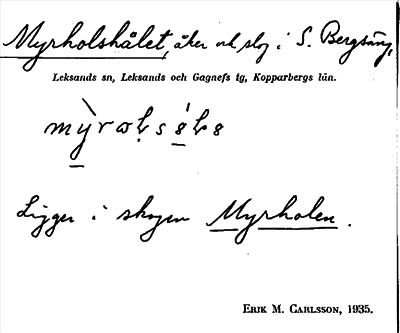 Myrholshålet, åker och slog i S. Bergsäng,
Leksands sn, Leksands och Gagnefs tg, Kopparbergs län.
Ligger i skogen Myrholen.
ERIK M. CARLSSON, 1935.